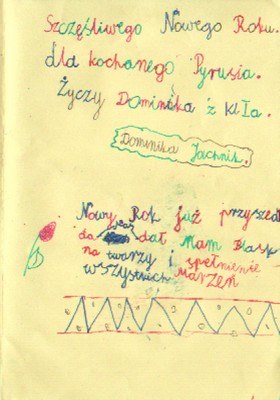 Szczęśliwego Nowego Roku.
dla kochanego Pyrusia.
Życzy Dominika z kl Ia.
Dominika Jachnik.
Nowy Rok już przyszedł
da nam blask
na twarzy i spełnienie
wszystkich marzeń